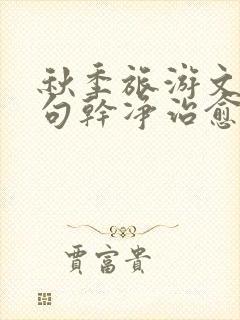 秋季旅游文
句幹净治愈
賈富貴